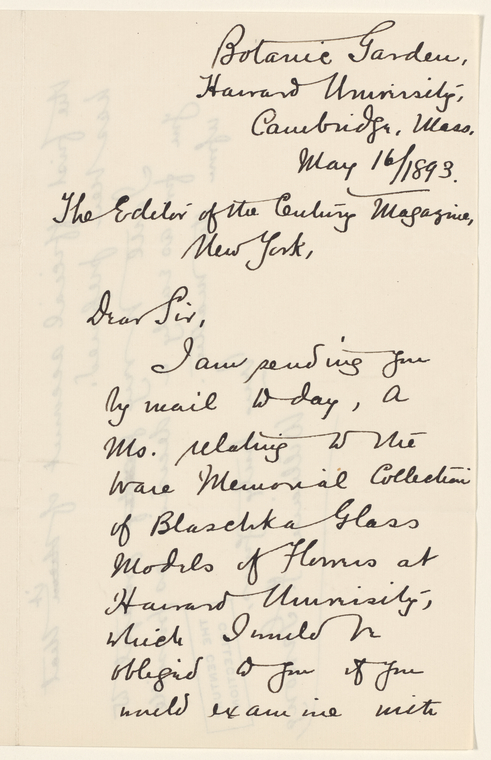 Botanic Garden,
Harvard University,
Cambridge, Mass.
May 16/1893.
The Editor of the Century Magazine,
New York,
Dear Sir,
I am sending you
by mail to day, a
Ms. relating to the
Ware Memorial Collection
of Blaschka Glass
Models of Flowers at
Harvard University,
which I would be
obliged to you if you
would examine with